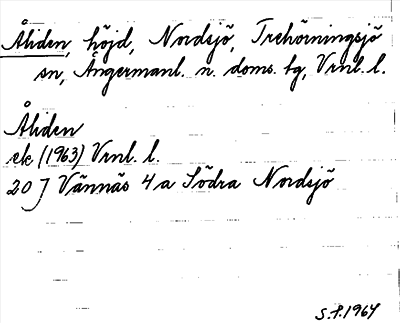 Åliden, höjd, Nordsjö, Trehörningsjö
sn, Ångermanl. n. doms. tg, Vrnl. l.
Åliden
ek (1963) Vrnl. l.
20 J Vännäs 4a Södra Nordsjö
S.F. 1964